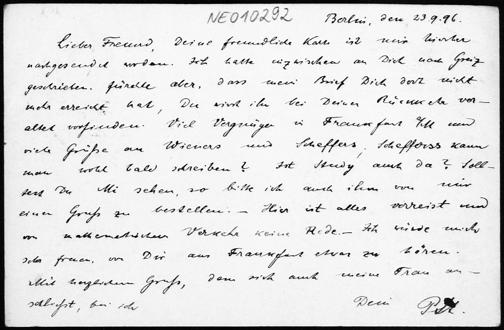 NE010292
Berlin, den 23.9.96.
Lieber Freund, Deine freundliche Karte ist mir hierher
nachgesendet worden. Ich hatte inzwischen an Dich nach Greiz
geschrieben, fürchte aber, dass mein Brief Dich dort nicht
mehr erreicht hat, Du wirst ihn bei Deiner Rückkehr vor-
vorfinden. Viel Vergnügen in Frankfurt und
viele Grüße an Wieners und Scheffers, kann
man wohl bald schreiben? Ist Study auch da? Soll-
test Du sehen, so bitte ich auch ihm von mir
einen Gruß zu bestellen. – Hier ist alles verreist und
von mathematischem Verkehr keine Rede. – Ich würde mich
sehr freuen, von Dir aus Frankfurt etwas zu hören.
Mit herzlichem Gruß, dem sich auch meine Frau an-
schließt, bin ich
Dein